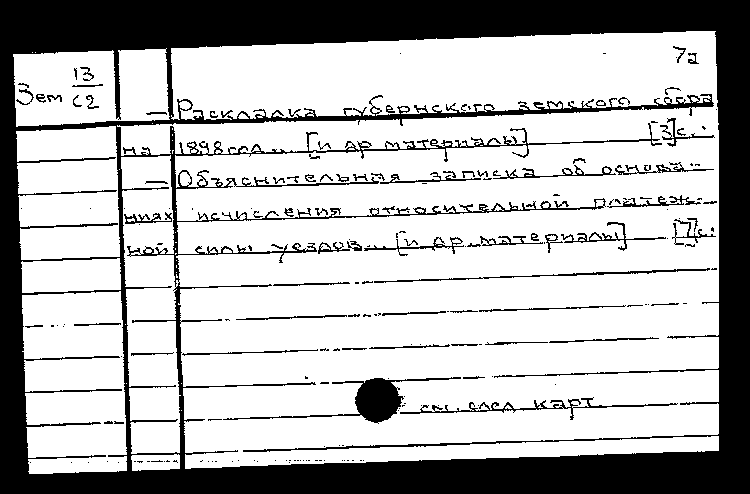 7а
Зем 13/С2
— Раскладка губернского земского сбора
на 1898 год... [и др материалы] [3]с.
— Объяснительная записка об основа-
ниях исчисления относительной платеж-
ной силы уездов... [и др. материалы] [7]с.
см. след карт.